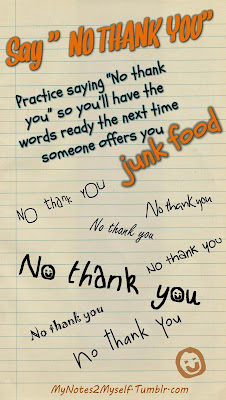 Say " NO THANK YOU"
Practice saying "No thank
you" so you'll have the
words ready the next time
someone offers you
junk food
No thank you
No thank you
No thank you
No thank you
No thank you
No thank you
No thank you
MyNotes2Myself-Tumblr.com